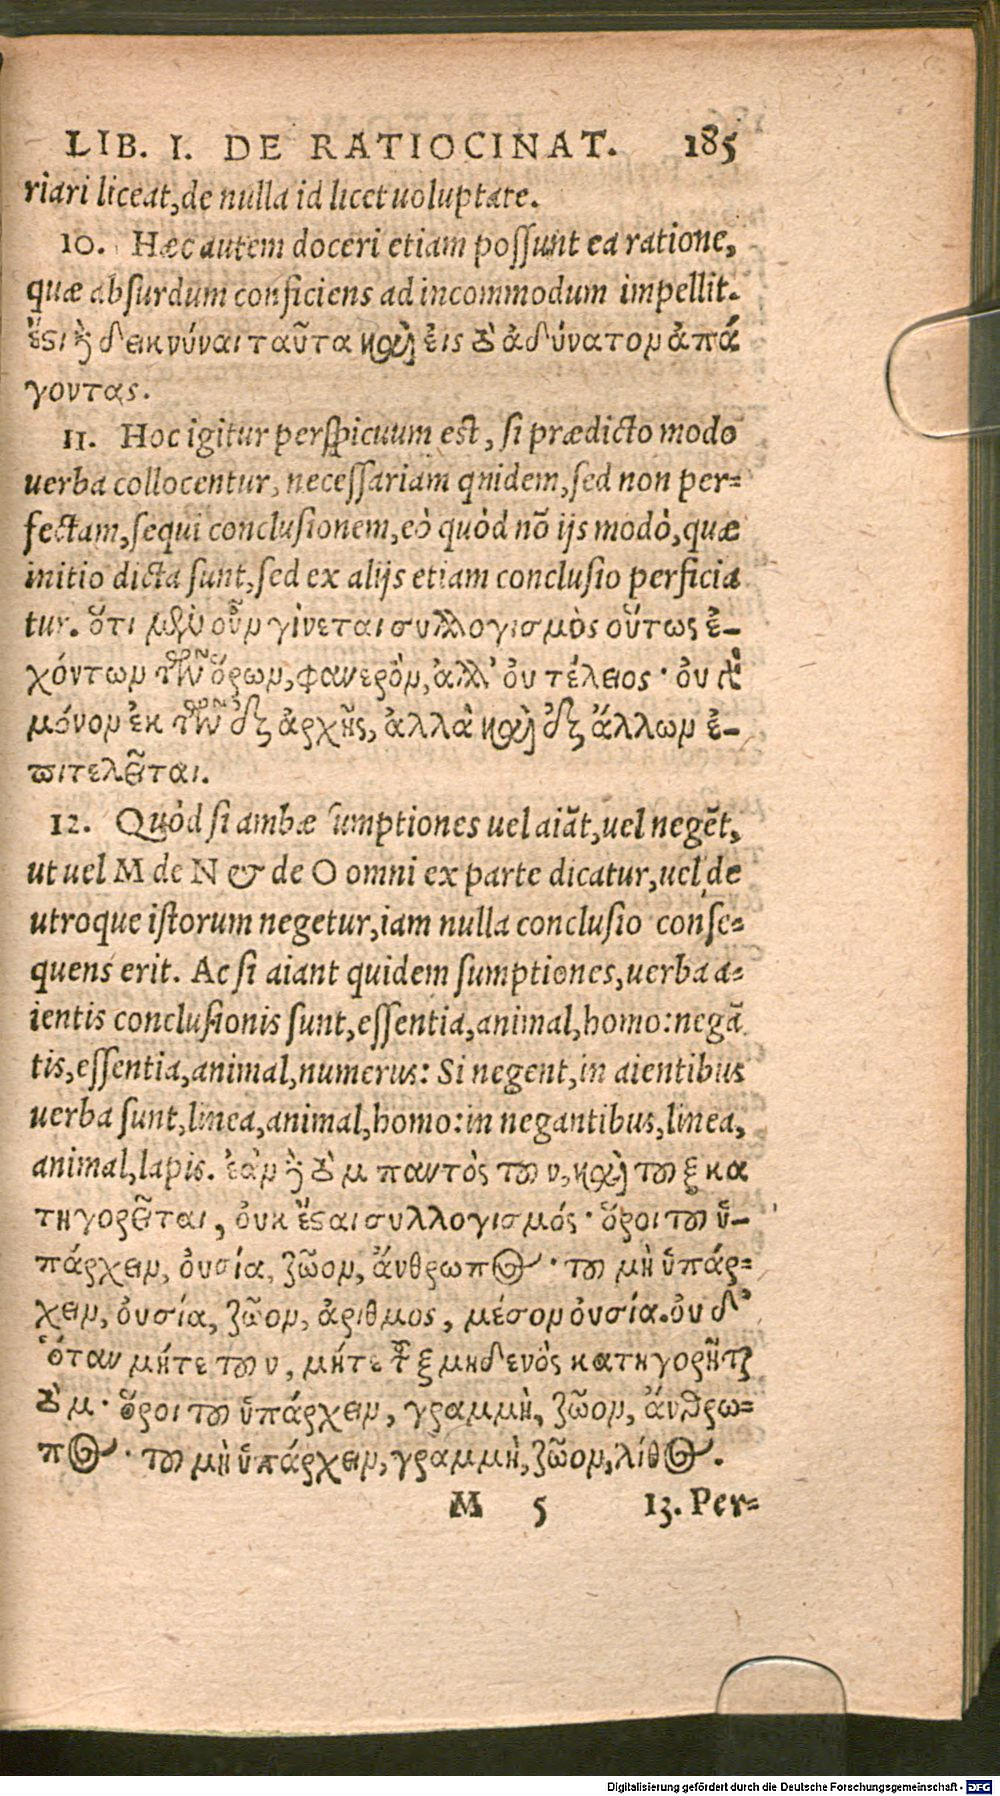 LIB. I. DE RATIOCINAT. 185
riari liceat, de nulla id licet uoluptate.
10. Hæc autem doceri etiam possunt ea ratione,
quæ absurdum conficiens ad incommodum impellit.
ἔστι ἢ δεικνύναι ταῦτα καὶ εἰς τὸ ἀδύνατον ἀπά
γοντας.
11. Hoc igitur perspicuum est, si prædicto modo
uerba collocentur, necessariam quidem, sed non per=
fectam, sequi conclusionem, eò quòd nõ ijs modò, quæ
initio dicta sunt, sed ex alijs etiam conclusio perficia
tur. ὅτι μὲν οὖν γίνεται συλλογισμὸς οὕτως ἐ-
χόντων τῶν ὅρων, φανερὸν, ἀλλ' οὐ τέλειος· οὐ γὰρ
μόνον ἐκ τῶν ἐξ ἀρχῆς, ἀλλὰ καὶ ἐξ ἄλλων ἐ-
πιτελεῖται.
12. Quòd si ambæ sumptiones uel aiãt, uel negẽt,
ut uel M de N & de O omni ex parte dicatur, uel de
utroque istorum negetur, iam nulla conclusio conse=
quens erit. Ac si aiant quidem sumptiones, uerba a=
ientis conclusionis sunt, essentia, animal, homo: negã
tis, essentia, animal, numerus: Si negent, in aientibus
uerba sunt, linea, animal, homo: in negantibus, linea,
animal, lapis. ἐὰν ἢ τὸ μ παντὸς τοῦ ν, καὶ τοῦ ξ κα
τηγορεῖται, οὐκ ἔσται συλλογισμός· ὅροι τοῦ ὑ-
πάρχειν, οὐσία, ζῶον, ἄνθρωπος· τοῦ μὴ ὑπάρ=
χειν, οὐσία, ζῶον, ἀριθμος, μέσον οὐσία. οὐ δ'
ὅταν μήτε τοῦ ν, μήτε τοῦ ξ μηδενὸς κατηγορῆται
τὸ μ· ὅροι τοῦ ὑπάρχειν, γραμμὴ, ζῶον, ἄνθρω=
πος· τοῦ μὴ ὑπάρχειν, γραμμὴ, ζῶον, λίθος.
M 5 13. Per=
Digitalisierung gefördert durch die Deutsche Forschungsgemeinschaft - DFG